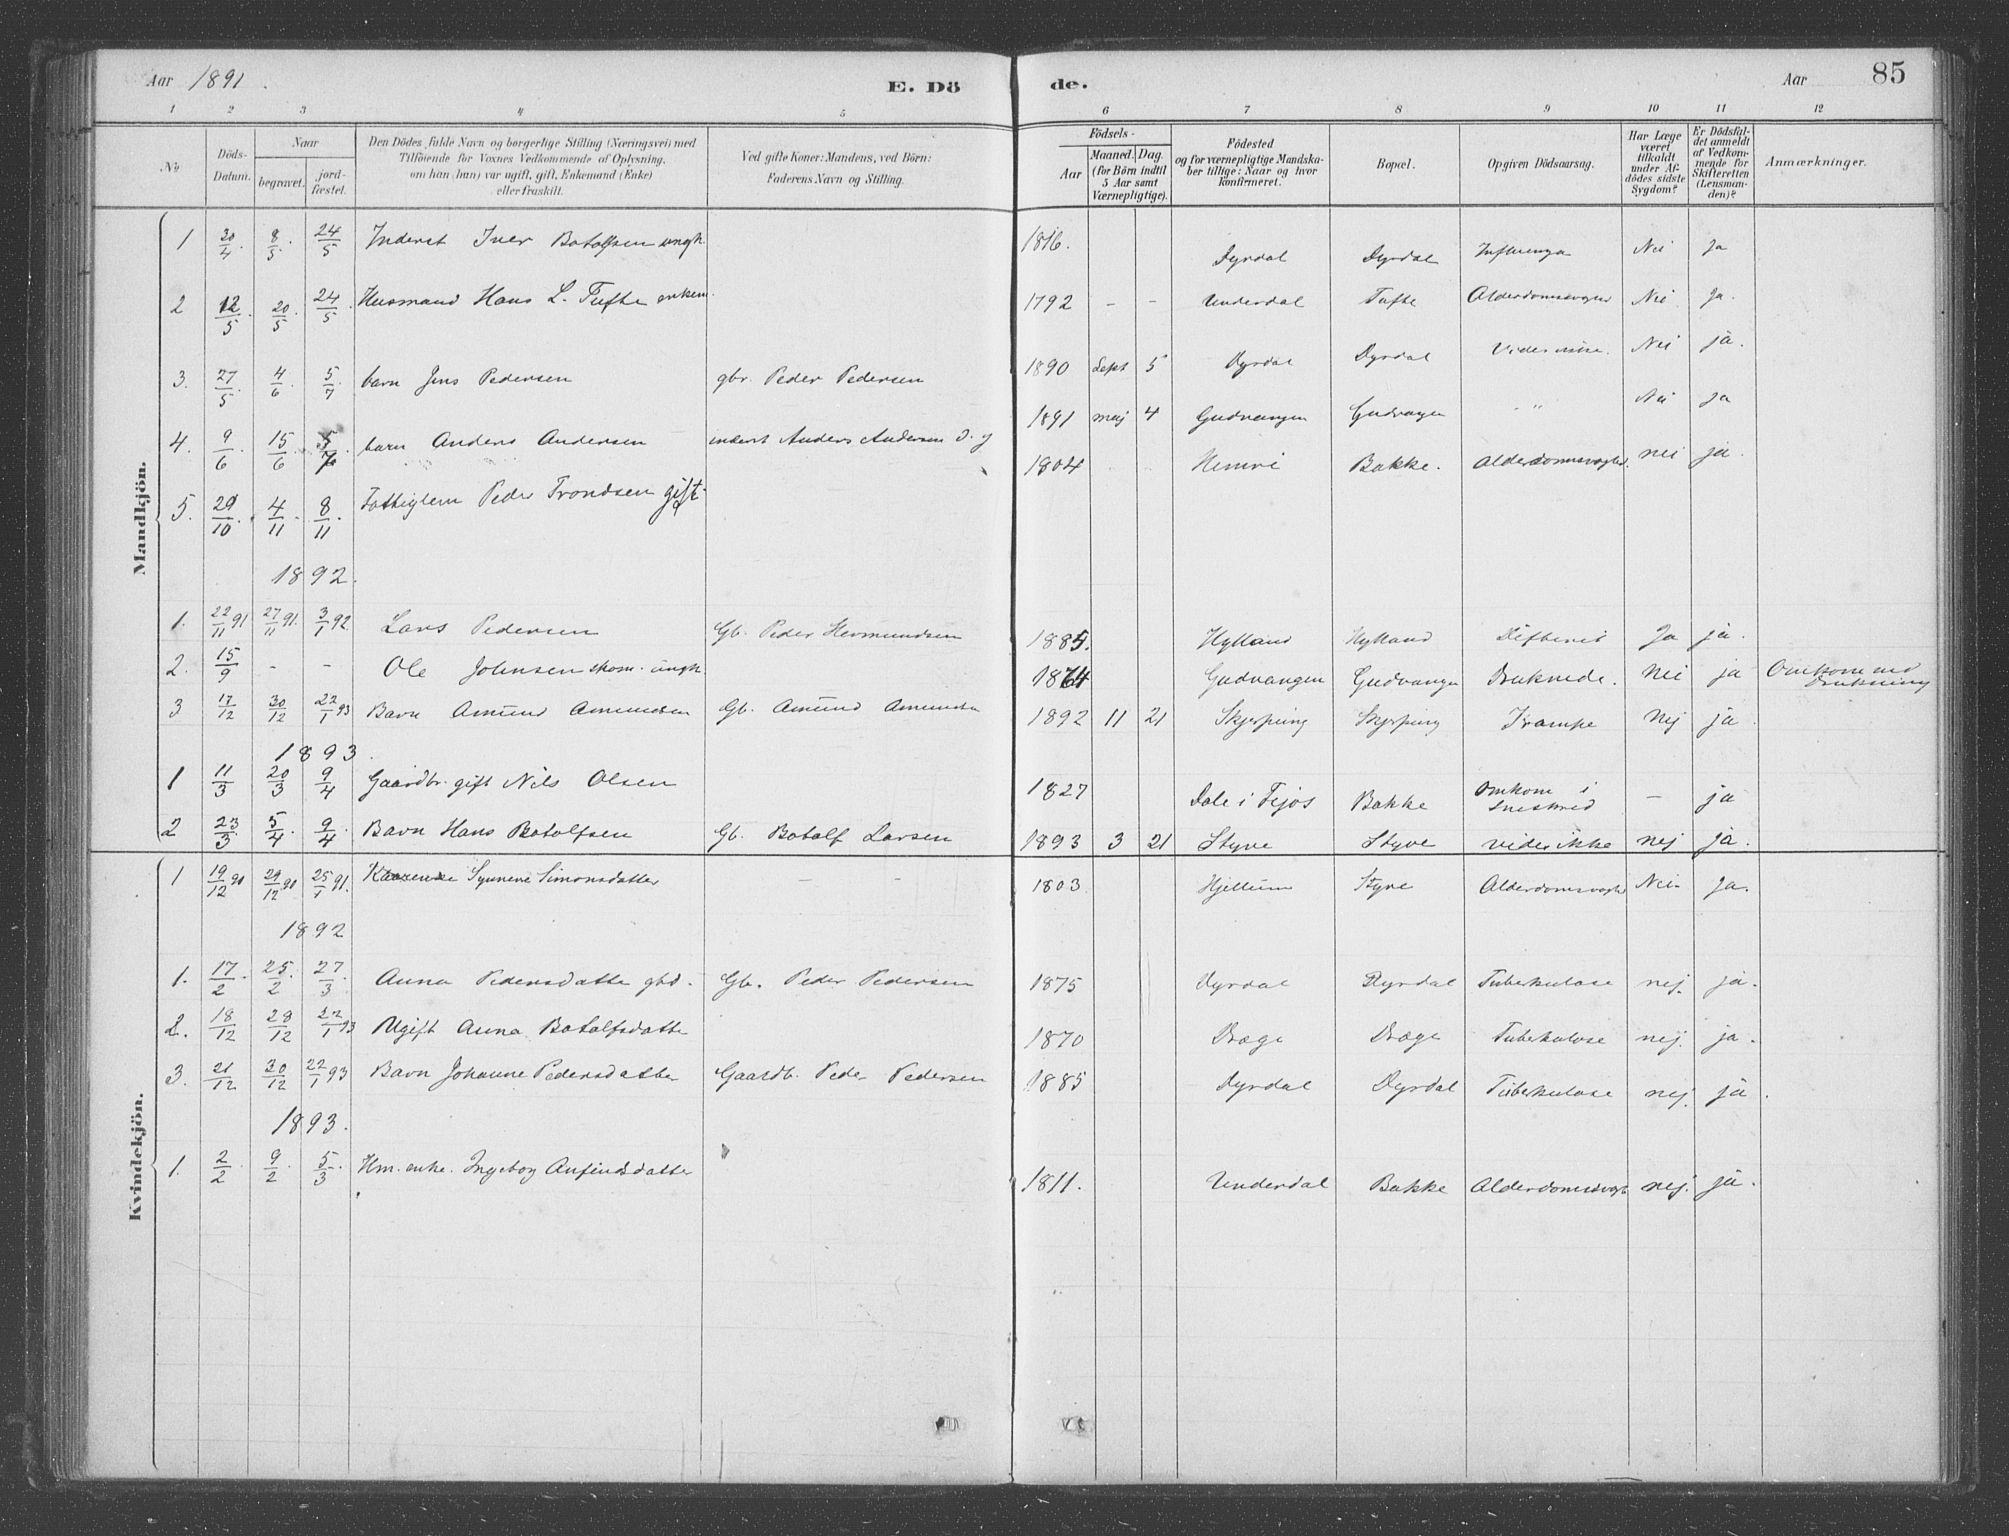 Aar 1891. E. Dö de. Aar 85
1 2 3 4 5 6 7 8 9 10 11 12
No Döds-Datum. Naar begravet. jord-fæstet. Den Dödes fulde Navn og borgerlige Stilling (Næringsvei) med Tilföiende for Voxnes Vedkommende af Oplysning, om han (hun) var ugift, gift, Enkemand (Enke) eller fraskilt. Ved gifte Koner: Mandens, ved Börn: Faderens Navn og Stilling. Födsels- Aar Maaned. Dag. (for Börn indtil 5 Aar samt Værnepligtige). Födested og for værnepligtige Mandska-ber tillige: Naar og hvor konfirmeret. Bopæl. Opgiven Dödsaarsag. Har Læge været tilkaldt under Af-dödes sidste Sygdom? Er Dödsfal-det anmeldt af Vedkom-mende for Skifteretten (Lensman-den)? Anmærkninger.
Mandkjön.
1 30/4 8/5. 24/5 Inderst Iver Botolfsen ungk. 1816. Dyrdal Dyrdal Influenza Nei Ja
2 12/5. 20/5. 24/5. Husmand Hans L. Tufte enkem. 1792 - - Underdal Tufte Alderdomssvaghed Nei Ja.
3. 27/5. 4/6. 5/7. barn Jens Pedersen gbr. Peder Pedersen 1890 Sept 5 Dyrdal Dyrdal Vides ikke. Nei ja.
4. 9/6. 15/6. 5/7 barn Anders Andersen inderst Anders Andersen 1891 maj 4 Gudvangen Gudvangen " Nei Ja
5. 29/10. 4/11. 8/11. Fattiglem Peder Trondsen gift. 1804 Bakke. Alderdomssvaghed. nei ja.
1892.
1. 22/11 91 27/11 91. 3/1 92. Lars Pedersen Gb. Peder Hermundsen 1885. Hylland Hylland Difterit Ja ja.
2. 15/9 - - Ole Johnsen skom. ungk. 1864 Gudvangen Gudvangen Druknede. Nei ja Omkom ved Drukning
3 17/12 30/12 22/1 93 Barn Amund Amundsen Gb. Amund Amundsen 1892 11 21 Skjerping Skjerping Krampe Nej ja.
1893.
1 11/3 20/3 9/4 Gaardbr. gift Nils Olsen 1827 Dale i Bakke Omkom i Sneskred - ja
2 23/3. 5/4. 9/4. Barn Hans Botolfsen Gb. Botolf Larsen 1893 3 21 Styve Styve vides ikke nej ja.
Kvindekjön.
1 19/12 90 29/12 90 25/1 91. Synneve Simonsdatter - - 1803 Hjellum Styve Alderdomssvaghed Nei. Ja.
1892
1. 17/2. 25/2. 27/3. Anna Pedersdatter gbd. Gb. Peder Pedersen 1875 Dyrdal Dyrdal Tuberkulose nej. ja.
2. 18/12 29/12 22/1 93 Ugift Anna Botolfsdatter 1870 Dræge Dræge Tuberkulose nej. ja.
3. 21/12 30/12 22/1 93 Barn Johanne Pedersdatter Gaardb. Peder Pedersen 1885 Dyrdal Dyrdal Tuberkulose nej. ja.
1893.
1. 2/2. 9/2. 5/3. Hm. enke. Ingebor Anfindsdatter 1811. Underdal Bakke Alderdomssvagh nej. ja.